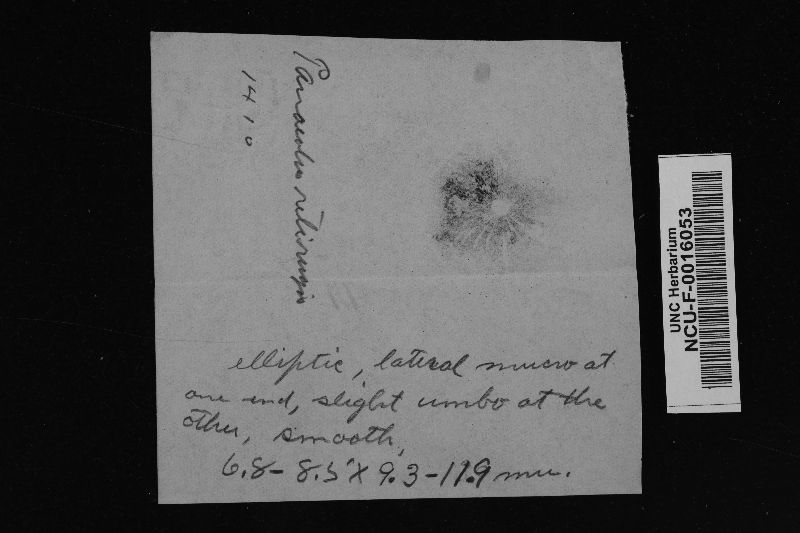 Panaeolus retirugis
1410
elliptic, lateral mucro at
one end, slight umbo at the
other, smooth,
6.8-8.5 X 9.3-11.9 mu.
UNC Herbarium
NCU-F-0016053